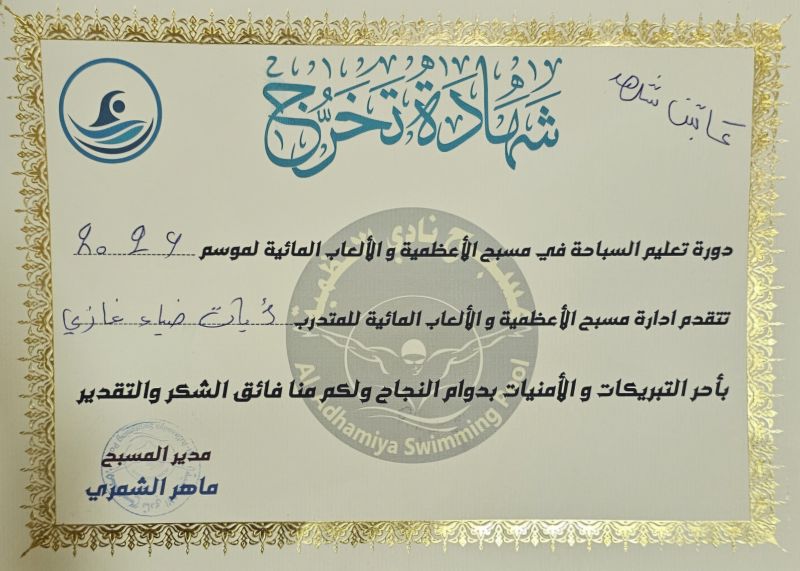 شهادة تخرج
دورة تعليم السباحة في مسبح الأعظمية و الألعاب المائية لموسم
تتقدم ادارة مسبح الأعظمية و الألعاب المائية للمتدرب ضياء غازي
بأحر التبريكات و الأمنيات بدوام النجاح ولكم منا فائق الشكر والتقدير
مدير المسبح
ماهر الشمري
Al Adhamiya Swimming Pool